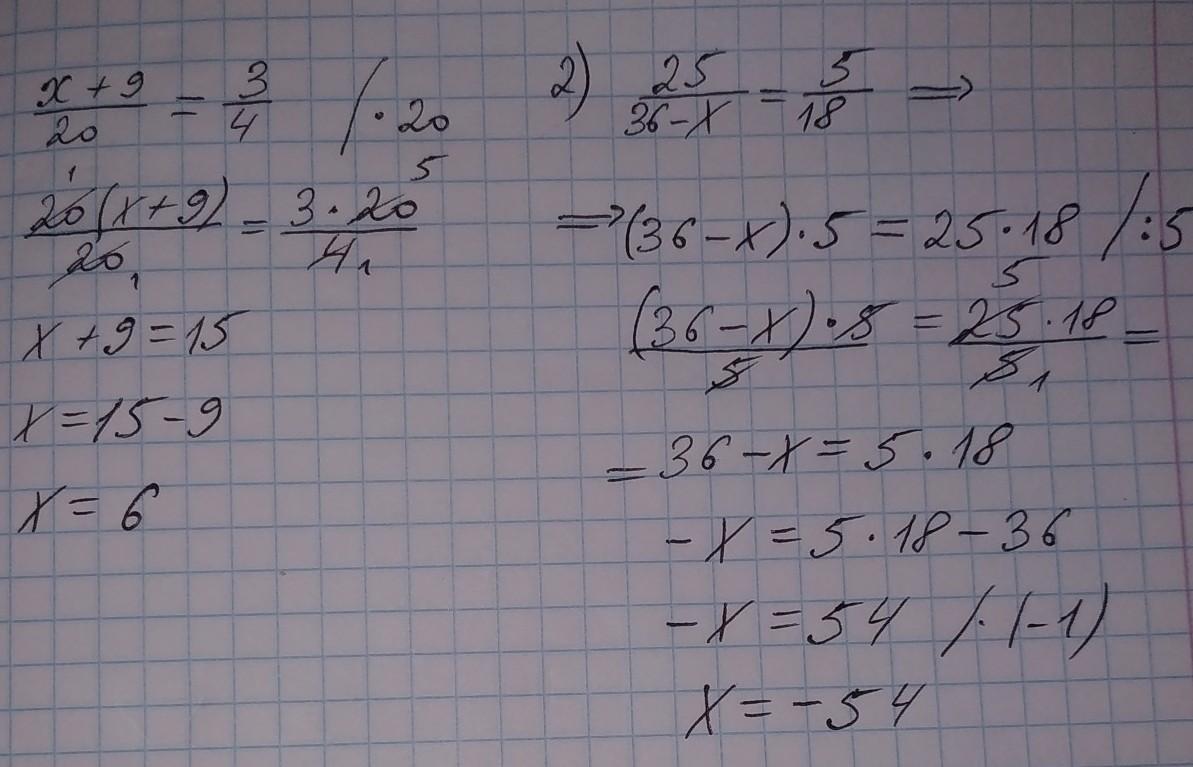 x + 9 / 20 = 3 / 4 / · 20
20 (x + 9) / 20 = 3 · 20 / 4
1 1 5 1
x + 9 = 15
x = 15 - 9
x = 6
2) 25 / 36 - x = 5 / 18 ⇒
⇒ (36 - x) · 5 = 25 · 18 / : 5
(36 - x) · 5 / 5 = 25 · 18 / 5 =
5 1
= 36 - x = 5 · 18
- x = 5 · 18 - 36
- x = 54 / · (-1)
x = -54